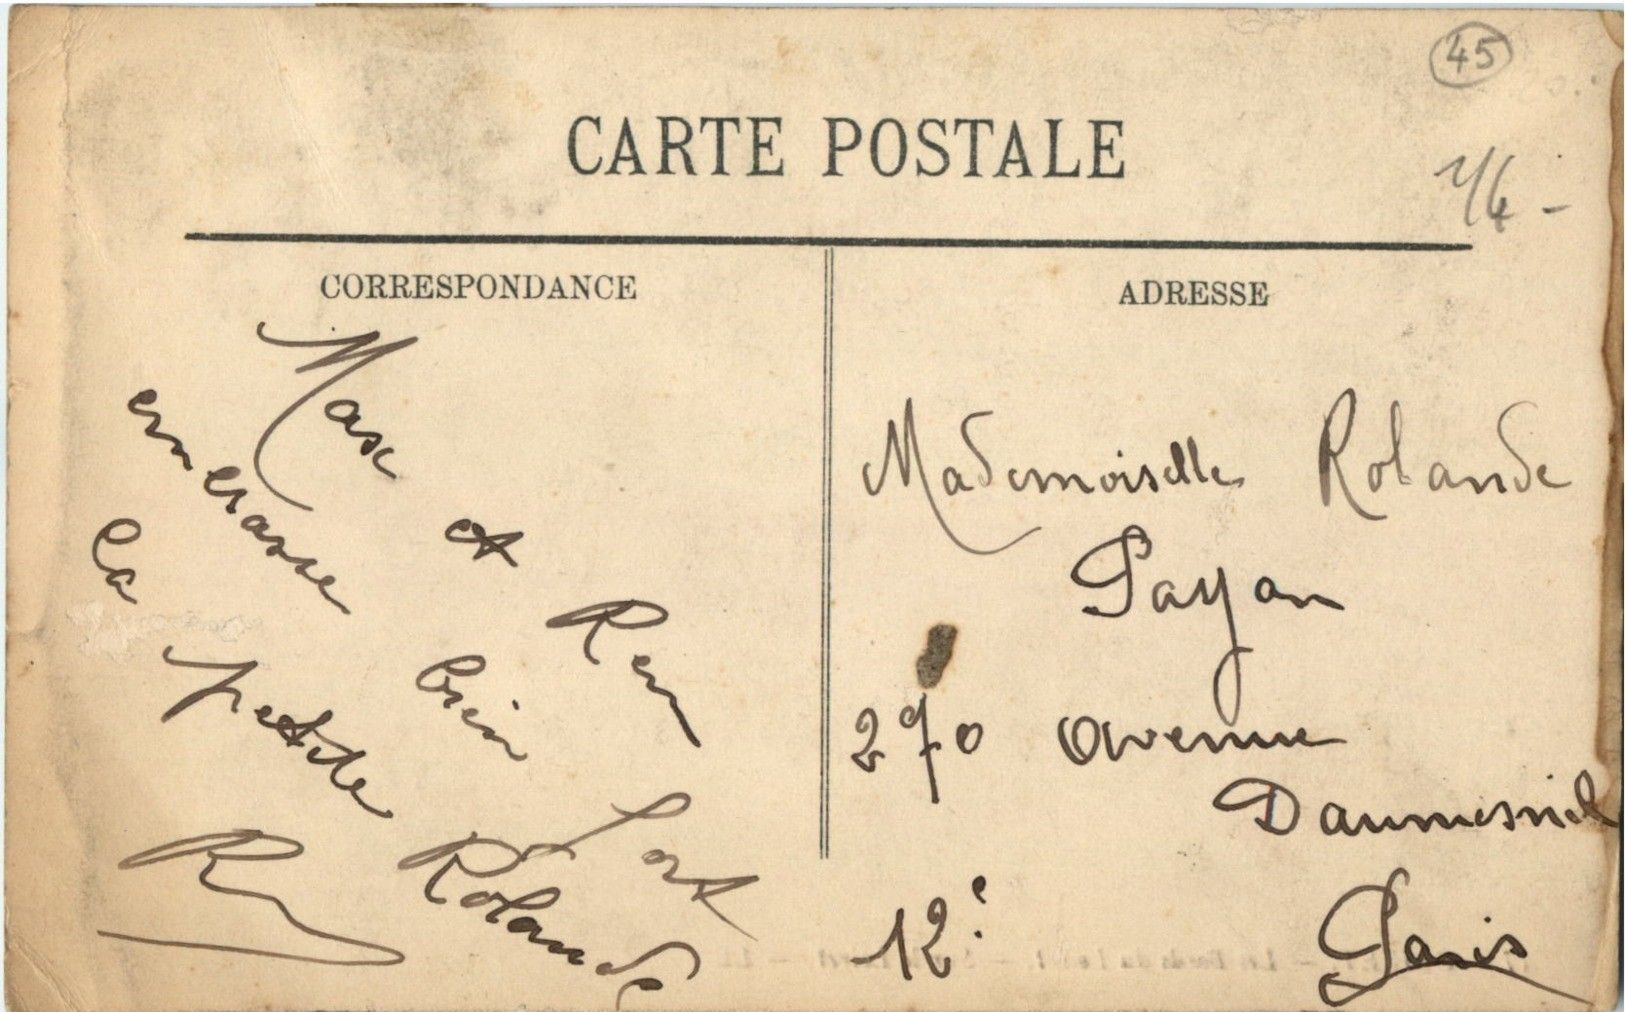 45
CARTE POSTALE
CORRESPONDANCE
Max et Ren
embrasse bien fort
la petite Rolande
R
ADRESSE
Mademoiselle Rolande
Payan
270 avenue
Daumesnil
12e Paris